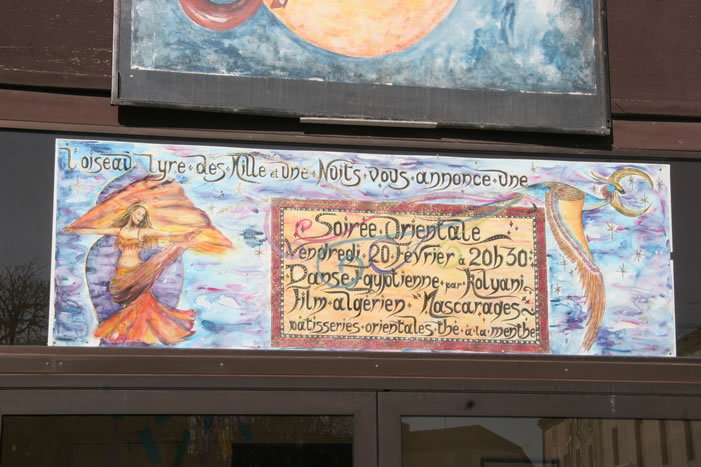 l'oiseau lyre des Mille et une Nuits vous annonce une
Soirée Orientale
Vendredi 20 Février à 20h30
Danse Egyptienne par Kalyani
Film algérien "Mascarades"
pâtisseries orientales thé à la menthe